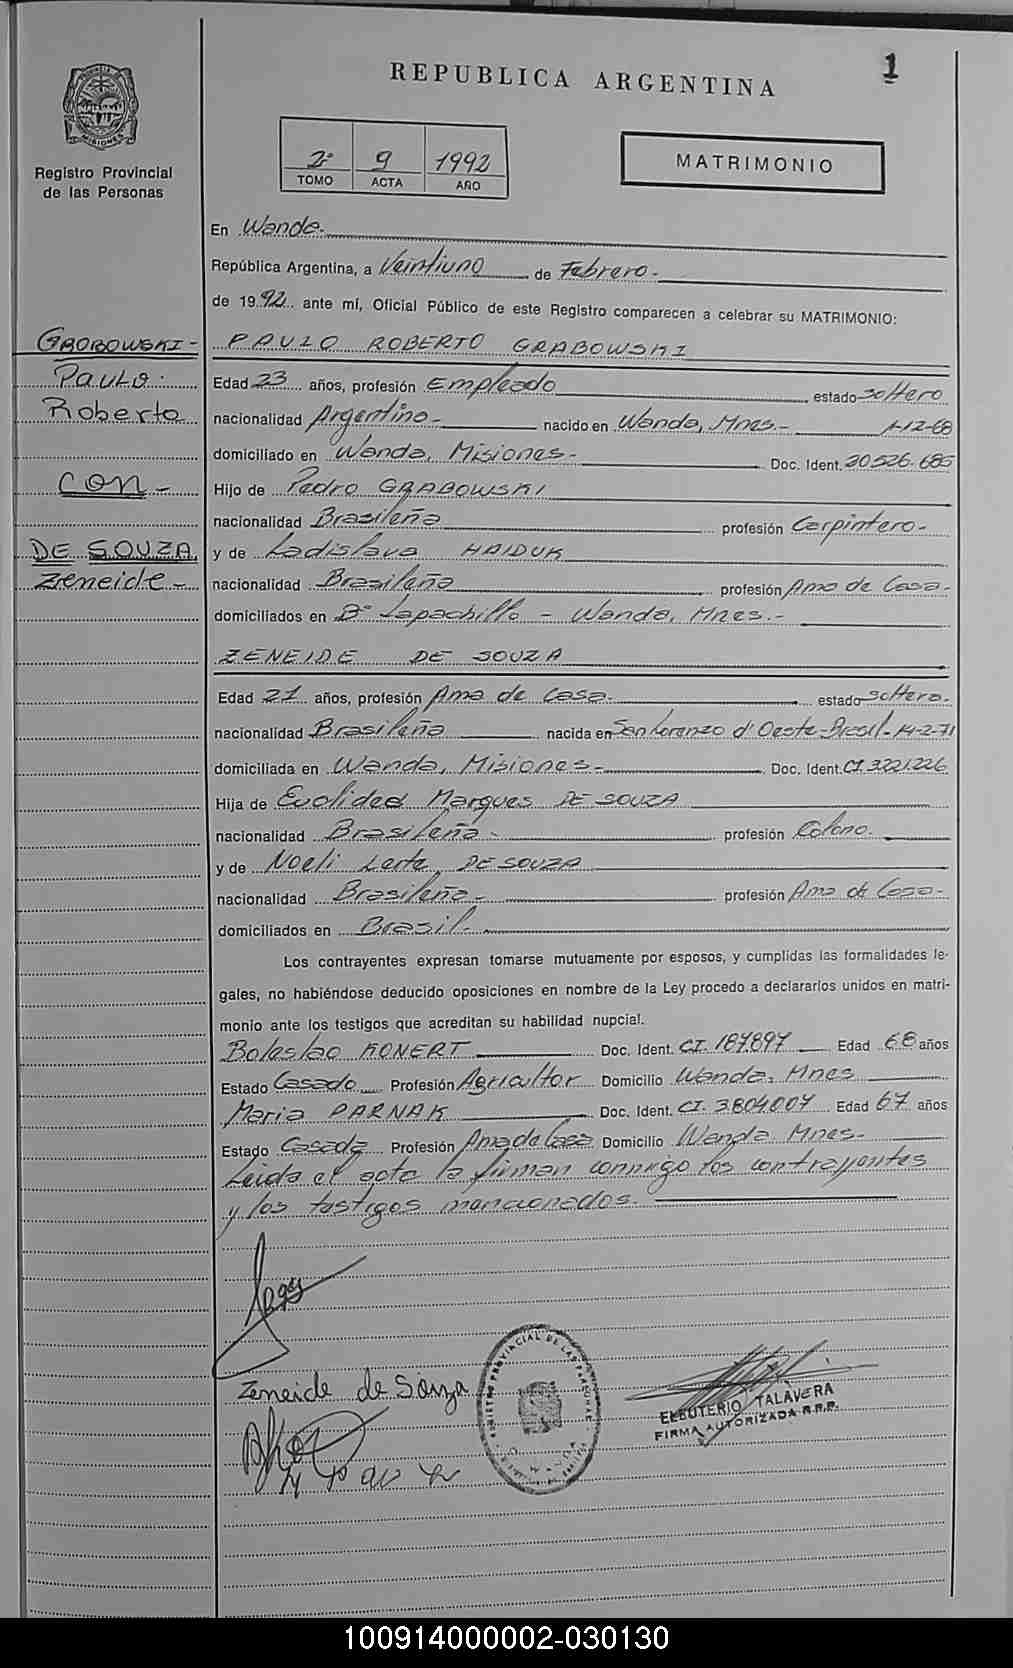 REPUBLICA ARGENTINA
1
PROVINCIA DE MISIONES
Registro Provincial
de las Personas
2º 9 1992
TOMO ACTA AÑO
MATRIMONIO
En Wanda.
República Argentina, a Veintiuno de Febrero.-
de 1992 ante mí, Oficial Público de este Registro comparecen a celebrar su MATRIMONIO:
GROBOWSKI-
Paulo.
Roberto
CON-
DE SOUZA
Zeneide-
PAULO ROBERTO GRABOWSKI
Edad 23 años, profesión Empleado estado soltero
nacionalidad Argentino- nacido en Wanda, Mnes.- 1-12-68
domiciliado en Wanda, Misiones- Doc. Ident. 20.526.685
Hijo de Pedro GRABOWSKI
nacionalidad Brasileña profesión Carpintero-
y de Ladislava HAIDUK
nacionalidad Brasileña profesión Ama de Casa-
domiciliados en Bº Lapachillo - Wanda, Mnes.-
ZENEIDE DE SOUZA
Edad 21 años, profesión Ama de Casa. estado soltera.
nacionalidad Brasileña nacida en San Lorenzo d' Oeste-Brasil-14-2-71
domiciliada en Wanda, Misiones- Doc. Ident. CI. 3221.226
Hija de Euclides Marques DE SOUZA
nacionalidad Brasileña- profesión Colono.
y de Noeli Leite DE SOUZA
nacionalidad Brasileña- profesión Ama de Casa-
domiciliados en Brasil.
Los contrayentes expresan tomarse mutuamente por esposos, y cumplidas las formalidades le-
gales, no habiéndose deducido oposiciones en nombre de la Ley procedo a declararlos unidos en matri-
monio ante los testigos que acreditan su habilidad nupcial.
Boleslao KONERT Doc. Ident. CI. 187897 Edad 68 años
Estado Casado Profesión Agricultor Domicilio Wanda, Mnes
Maria PARNAK Doc. Ident. CI. 3804.007 Edad 67 años
Estado Casada Profesión Ama de Casa Domicilio Wanda Mnes-
Leida el acta la firman conmigo los contrayentes
y los testigos mencionados.
Zeneide de Souza
REGISTRO PROVINCIAL DE LAS PERSONAS
WANDA
ELEUTERIO TALAVERA
FIRMA AUTORIZADA R.P.P.
100914000002-030130